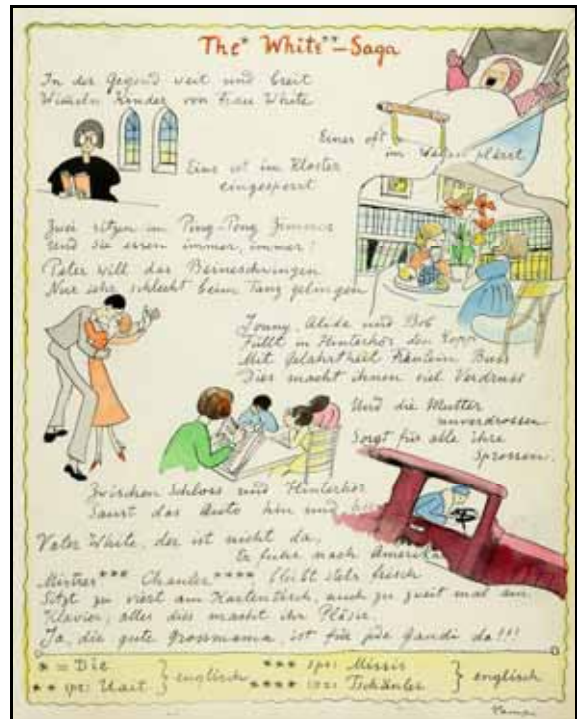 The* White**-Saga
In der Gegend weit und breit
Wimeln Kinder von Frau White
Einer oft
im Wagen plärrt
Eine ist im Kloster
eingesperrt
Zwei sitzen im Ping-Pong Zimmer
Und sie essen immer, immer!
Peter will das Beineschwingen
Nur sehr schlecht beim Tanz gelingen
Jonny, Alide und Bob
Füllt in Hinterhör den Kopp
Mit Gelahrtheit Fräulein Buss
Dies macht ihnen viel Verdruss
Und die Mutter
unverdrossen
Sorgt für alle ihre
Sprossen.
Zwischen Schloss und Hinterhör
Saust das Auto hin und her
Vater White, der ist nicht da,
Er fuhr nach Amerika
Mistres*** Chanler**** bleibt stets frisch
Sitzt zu viert am Kartentisch, auch zu zweit mal am
Klavier, alles dies macht ihr Pläsir.
Ja, die gute Grossmama, ist für jede Gaudi da!!!
* = Die
** spr: Uait } englisch
*** spr: Missis
**** spr: Tschänler } englisch